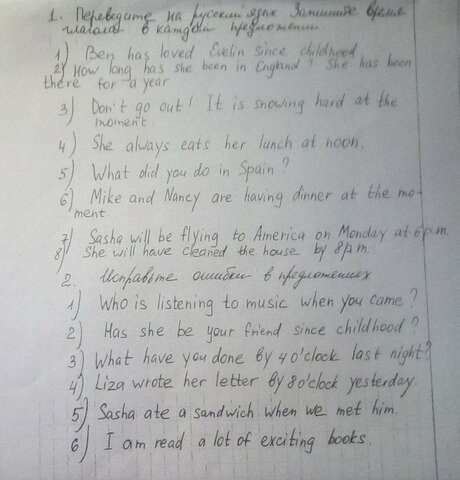 1. Переведите на русский язык Запишите время
глагола в каждом предложении
1) Ben has loved Evelin since childhood
2) How long has she been in England? She has been
there for a year
3) Don't go out! It is snowing hard at the
moment
4) She always eats her lunch at noon.
5) What did you do in Spain?
6) Mike and Nancy are having dinner at the mo-
ment
7) Sasha will be flying to America on Monday at 6 p.m.
8) She will have cleaned the house by 8 p.m.
2. Исправьте ошибки в предложениях
1) Who is listening to music when you came?
2) Has she be your friend since childhood?
3) What have you done by 4 o'clock last night?
4) Liza wrote her letter by 8 o'clock yesterday.
5) Sasha ate a sandwich when we met him.
6) I am read a lot of exciting books.